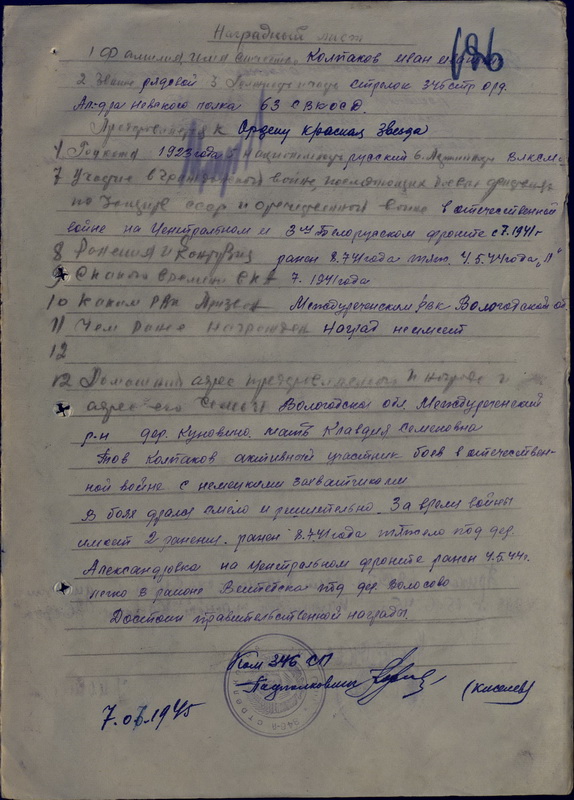 Наградный лист
1 Фамилия имя отчество Колпаков Иван
2 Звание рядовой 3 стрелок 346 стр орд.
Ал-дра Невского полка 63 СВКОСД.
к Ордену Красная Звезда
4 Год 1923 года 5 русский 6. ВЛКСМ
7 Участие в гражданской войне, последующих боевых действиях
по защите СССР и отечественной войне в отечественной
войне на Центральном и 3ем Белорусском фронте с 7.1941г
8 Ранения и контузии ранен 8.741года тяж. 4.5.44года
9 С какого времени в КА 7. 1941года
10 Каким РВК призван Междуреченским РВК Вологодской
11 Чем ранее награжден наград не имеет
12
12 Домашний адрес представляемого к награде и
адрес его семьи Вологодская обл. Междуреченский
р-н дер. Куновино. мать Клавдия Семеновна
Тов Колпаков активный участник боев в отечествен-
ной войне с немецкими захватчиками
В боях дрался смело и решительно. За время войны
имеет 2 ранения. ранен 8.741года тяжело под дер.
Александровка на Центральном фронте ранен 4.5.44г.
легко в районе Витебска под дер. Волосово
Достоин правительственной награды.
Ком 346 СП
Подполковник (Киселев)
7.07.1945